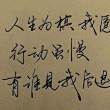 人生为棋,我愿
行动虽慢
有谁见我后退